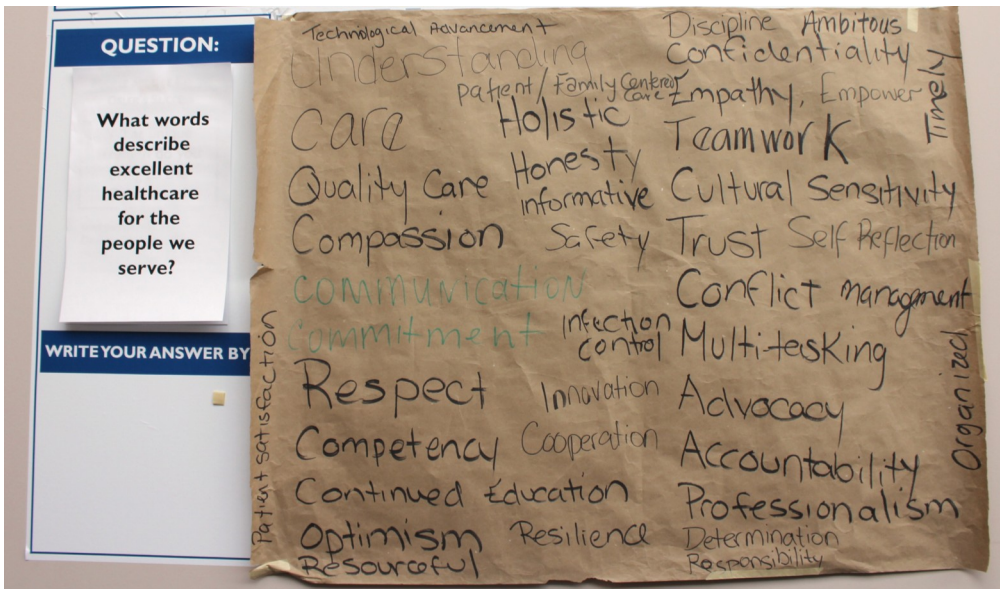 QUESTION:
What words
describe
excellent
healthcare
for the
people we
serve?
WRITE YOUR ANSWER BY
Technological Advancement
Understanding
Patient/Family Centered
Care
Care
Holistic
Quality Care
Honesty
informative
Compassion
Safety
Communication
Commitment
Infection
control
Respect
Innovation
Competency
Cooperation
Continued Education
Optimism
Resilience
Resourceful
Patient satisfaction
Discipline Ambitous
Confidentiality
Empathy, Empower
Teamwork
Cultural Sensitivity
Trust Self Reflection
Conflict managment
Multi-tasking
Advocacy
Accountability
Professionalism
Determination
Responsibility
Timely
Organized